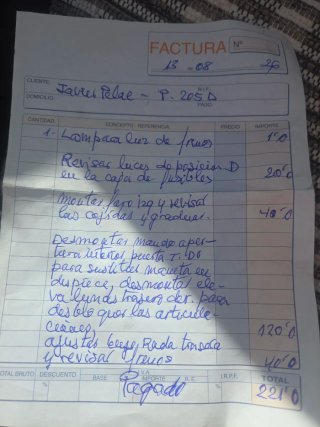 FACTURA Nº
13 - 08 - 26
CLIENTE Javier Pelae - P. 205 D N.I.F.
DOMICILIO PAGO
CANTIDAD CONCEPTO - REFERENCIA PRECIO IMPORTE
1 - Lampara luz de frenos 1'0
Revisar luces de posicion D
en la caja de fusibles 20'0
montar faro izq y revisar
las cojidas y graduar 40'0
Desmontar mando aper-
tura interior puerta
para sustituir maneta en
despiece, desmontar ele-
valunas trasero der. para
desbloquear las articula-
ciones 120'0
ajustar trasera
y revisar frenos 40'0
TOTAL BRUTO DESCUENTO BASE I.V.A. IMPORTE R.E. I.R.P.F. TOTAL
% Pagado % 221'0